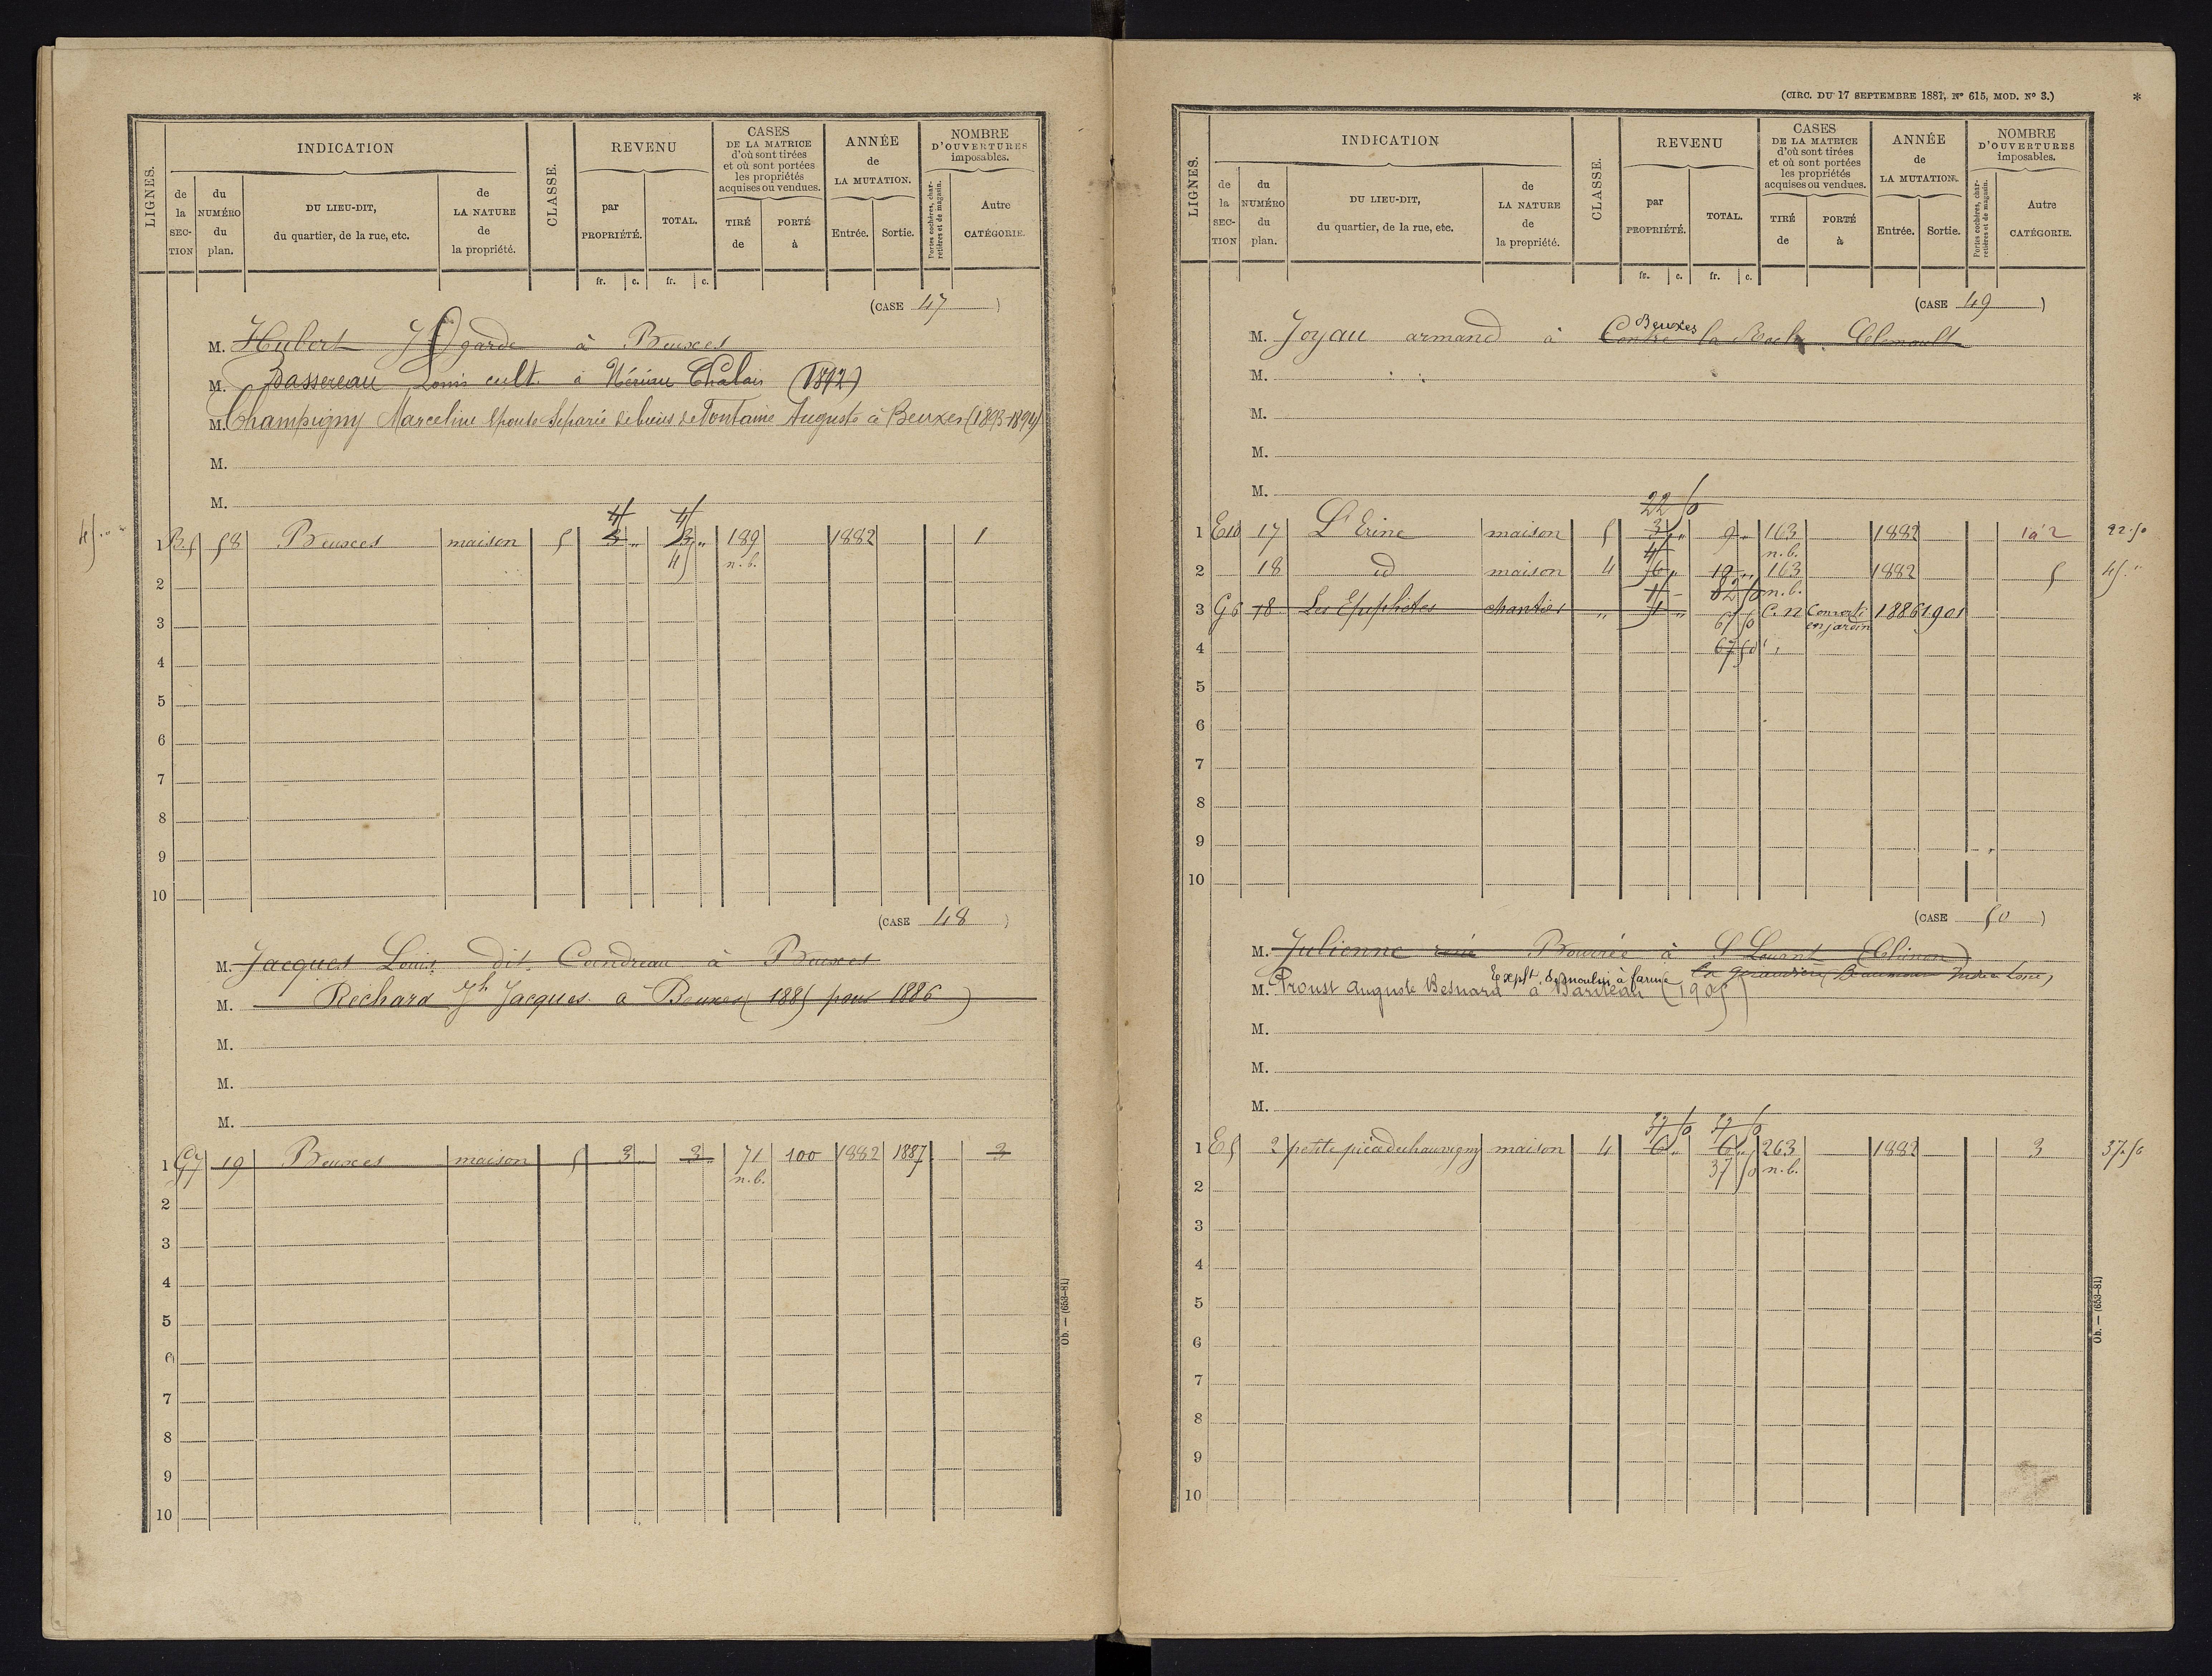 LIGNES.
INDICATION
de la SECTION
du NUMÉRO du plan.
DU LIEU-DIT, du quartier, de la rue, etc.
de LA NATURE de la propriété.
CLASSE.
REVENU
par PROPRIÉTÉ.
TOTAL.
CASES DE LA MATRICE d'où sont tirées et où sont portées les propriétés acquises ou vendues.
TIRÉ de
PORTÉ à
ANNÉE de LA MUTATION.
Entrée.
Sortie.
NOMBRE D'OUVERTURES imposables.
Portes cochères, charretières et de magasin.
Autre CATÉGORIE.
fr. c. fr. c.
(CASE 47)
M. Hubert garde à Beuxes
M. Bassereau Louis cult. à Chalais (1892)
M. Champigny Marceline épouse séparée de biens de Fontaine Auguste à Beuxes (1893-1894)
M.
M.
4 4
45 "
1 B.5 58 Beuxes maison 5 3 " 3 " 189 1882 1
45 n.b.
2
3
4
5
6
7
8
9
10
(CASE 48)
M. Jacques Louis dit Candreau à Beuxes
M. Rechard Jh Jacques à Beuxes (1885 pour 1886)
M.
M.
M.
1 G7 19 Beuxes maison 5 3 " 3 " 71 100 1882 1887 3
n.b.
2
3
4
5
6
7
8
9
10
Ob. — (653-81)
(CIRC. DU 17 SEPTEMBRE 1881, No 615, MOD. No 3.)
*
LIGNES.
INDICATION
de la SECTION
du NUMÉRO du plan.
DU LIEU-DIT, du quartier, de la rue, etc.
de LA NATURE de la propriété.
CLASSE.
REVENU
par PROPRIÉTÉ.
TOTAL.
CASES DE LA MATRICE d'où sont tirées et où sont portées les propriétés acquises ou vendues.
TIRÉ de
PORTÉ à
ANNÉE de LA MUTATION.
Entrée.
Sortie.
NOMBRE D'OUVERTURES imposables.
Portes cochères, charretières et de magasin.
Autre CATÉGORIE.
fr. c. fr. c.
(CASE 49)
Beuxes
M. Joyau armand à la Roche Clermault
M.
M.
M.
M.
22 50
1 E10 17 L'Erine maison 5 3 " 9 " 163 1882 1 à 2 22.50
45 n.b.
2 18 id maison 4 6 " 163 1882 5 45."
n.b.
3 G6 78 Les Epiphètes chantier " 1 " 67 50 C.n Converti en jardin 1886 1901
4 67 50
5
6
7
8
9
10
(CASE 50)
M. Julienne Bourée à St Louant (Chinon)
Exploit. de moulin à farine
M. Proust Auguste Besnard à Bariteau (1905)
M.
M.
M.
37 50 37 50
1 E5 2 petite pièce de chauvigny maison 4 6 " 6 " 263 1882 3 37.50
37 50 n.b.
2
3
4
5
6
7
8
9
10
Ob. — (653-81)